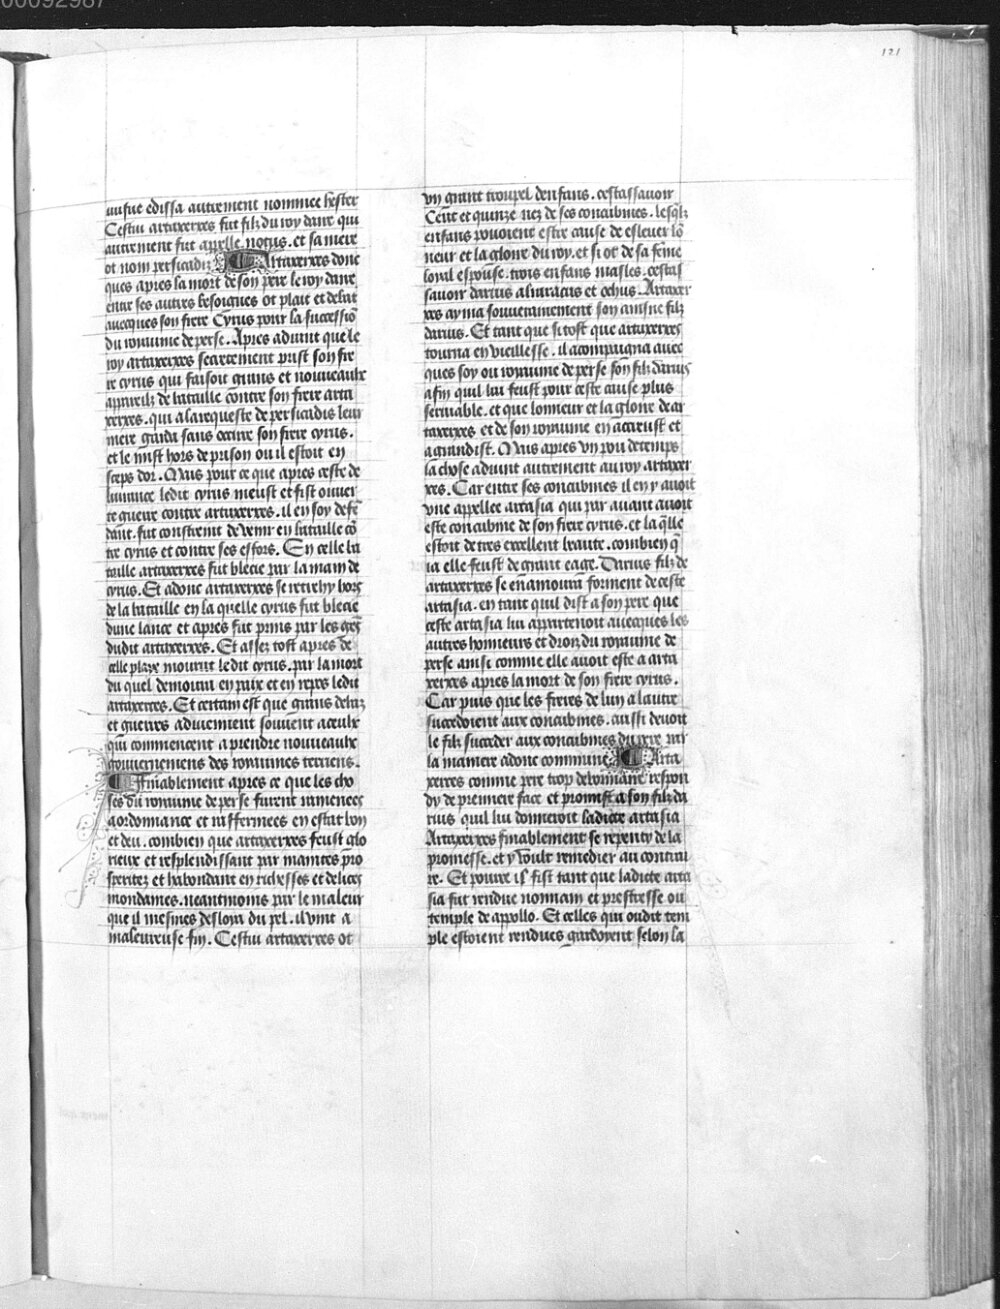 00092987
121
uifue edissa autrement nommee hester
Cestui artaxerxes fut filz du roy daire qui
autrement fut apelle nothus. et sa mere
ot nom persicadis Artaxerxes donc
ques apres la mort de son pere le roy daire
entre ses autres besoignes ot plait et debat
auecques son frere Cyrus pour la successiō
du royaume de perse. Apres aduint que le
roy artaxerxes secretement prist son fre
re cyrus qui faisoit grans et nouueaulx
appareilz de bataille contre son frere arta
xerxes. qui a la requeste de persicadis leur
mere garda sans occire son frere cyrus.
et le mist hors de prison ou il estoit en
seps dor. Mais pour ce que apres ceste de
liurance ledit cyrus meust et fist ouuer
te guerre contre artaxerxes. il en soy defē
dant. fut constreint de venir en bataille cō
tre cyrus et contre ses effors. En celle ba
taille artaxerxes fut blecie par la main de
cyrus. Et adonc artaxerxes se retrehy hors
de la bataille en la quelle cyrus fut blecie
dune lance et apres fut prins par les gēs
dudit artaxerxes. Et assez tost apres de
celle playe mourut ledit cyrus. par la mort
du quel demoura en paix et en repos ledit
artaxerces. Et certain est que grans debaz
et guerres aduiennent souuent a ceulx
qui commencent a prendre nouueaulx
gouuernemens des royaumes terriens.
Finablement apres ce que les cho
ses du royaume de perse furent ramenees
a ordonnance et raffermees en estat bon
et deu. combien que artaxerxes feust glo
rieux et resplendissant par maintes pro
speritez et habondant en richesses et delices
mondaines. neantmoins par le maleur
que il mesmes desloia du pel. il vint a
maleureuse fin. Cestui artaxerxes ot
vn grant troupel denfans. cestassauoir
Cent et quinze nez de ses concubines. lesqlz
enfans pouoient estre cause de esleuer lō
neur et la gloire du roy. et si ot de sa feme
loyal espouse. trois enfans masles. cestas
sauoir darius aliaracus et ochus. Artaxer
xes ayma souuerainement son ainsne filz
darius. Et tant que si tost que artaxerxes
tourna en vieillesse. il acompaigna auec
ques soy ou royaume de perse son filz darius
afin quil lui feust pour ceste cause plus
seruiable. et que lonneur et la gloire de ar
taxerxes et de son royaume en accreust et
agrandist. Mais apres vn pou de temps
la chose aduint autrement au roy artaxer
xes. Car entre ses concubines il en y auoit
vne appellee artasia qui par auant auoit
este concubine de son frere cyrus. et la qlle
estoit de tres excellent beaute. combien q̄
ia elle feust de grant eage. Darius filz de
artaxerxes se enamoura forment de ceste
artasia. en tant quil dist a son pere que
ceste artasia lui appartenoit auecques les
autres honneurs et droiz du royaume de
perse ainsi comme elle auoit este a arta
xerxes apres la mort de son frere cyrus.
Car puis que les freres de lun a lautre
succedoient aux concubines. aussi deuoit
le filz succeder aux concubines du pere par
la maniere adonc commune. Arta
xerces comme pere trop debonnaire respon
dy de premiere face et promist a son filz da
rius quil lui donneroit ladicte artasia
Artaxerxes finablement se repenty de la
promesse. et y voult remedier au contrai
re. Et pource il fist tant que ladicte arta
sia fut rendue nonnain et prestresse ou
temple de appollo. Et celles qui oudit tem
ple estoient rendues gardoyent selon la